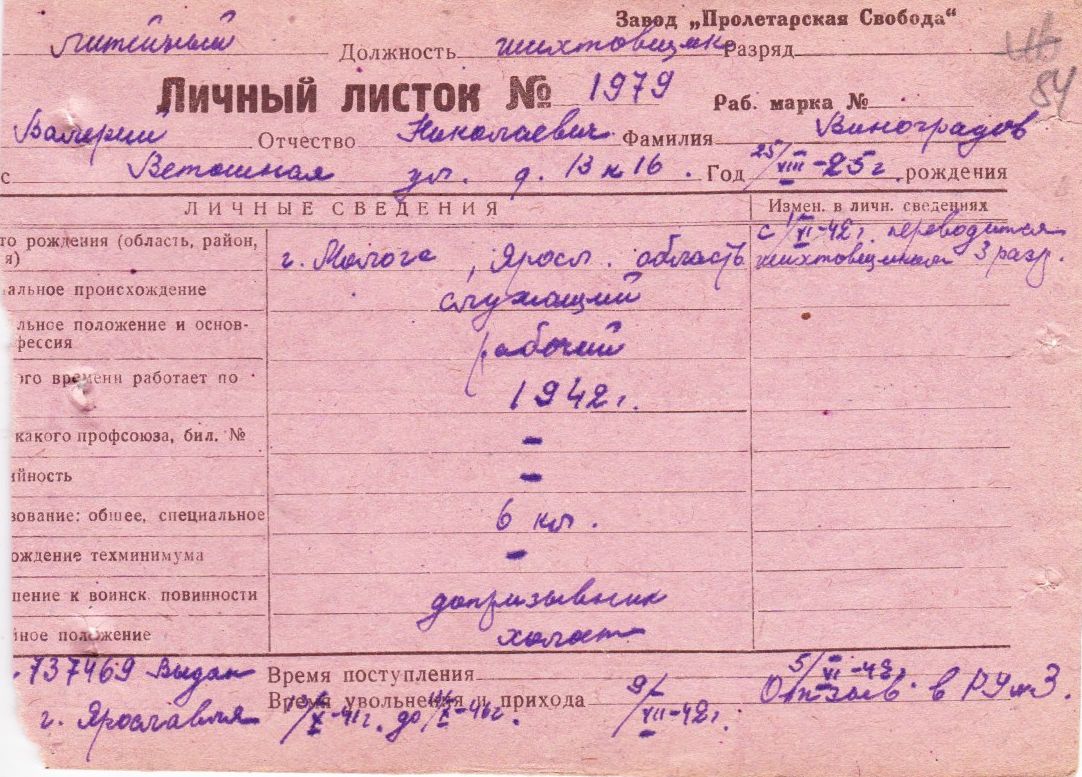 Завод „Пролетарская Свобода“
Литейный Должность шихтовщик Разряд
84
Личный листок № 1979 Раб. марка №
Валерий Отчество Николаевич Фамилия Виноградов
с Ветошная ул. д. 13 к 16. Год 25/VIII-25г рождения
ЛИЧНЫЕ СВЕДЕНИЯ Измен. в личн. сведениях
то рождения (область, район, г. Молога, Яросл. область с 1/VI-42г. переводится
я) шихтовщиком 3 разр.
альное происхождение служащий
льное положение и основ-
фессия рабочий
ого времени работает по 1942г.
какого профсоюза, бил. № –
ийность –
зование: общее, специальное 6 кл.
ождение техминимума –
шение к воинск. повинности допризывник
йное положение холост
737469 Выдан Время поступления 5/VI-42г.
Время увольнения и прихода 9/VII-42г. Отчисл. в РУ №3.
г. Ярославля /X-41г. до /X-46г.